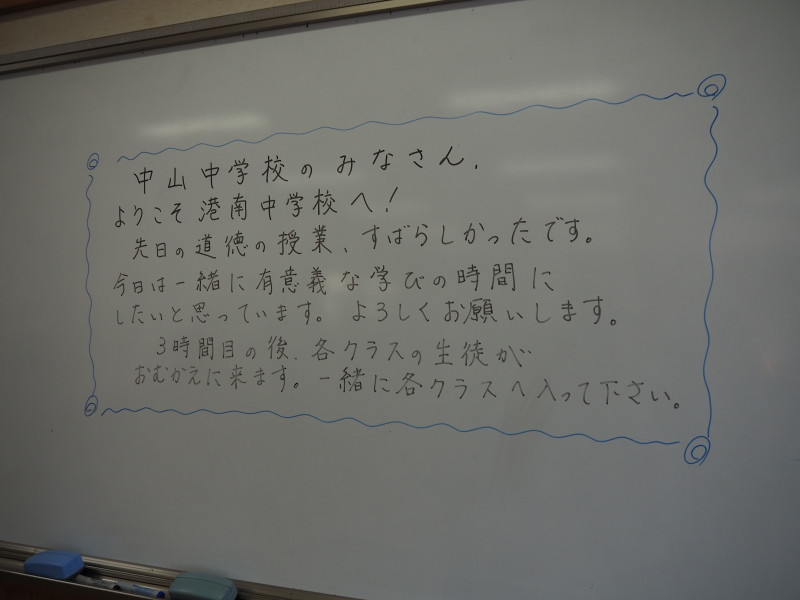 中山中学校のみなさん、
ようこそ港南中学校へ！
先日の道徳の授業、すばらしかったです。
今日は一緒に有意義な学びの時間に
したいと思っています。よろしくお願いします。
3時間目の後、各クラスの生徒が
おむかえに来ます。一緒に各クラスへ入って下さい。